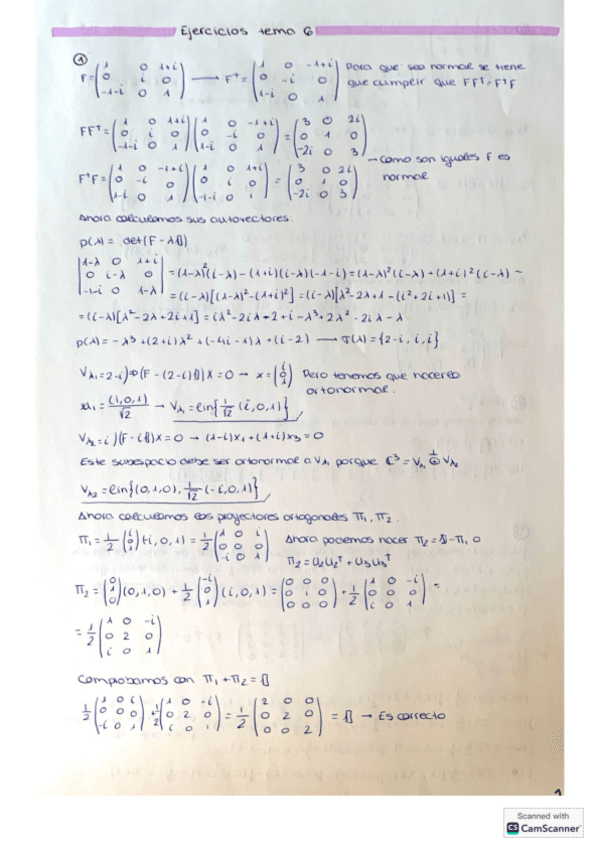 Ejercicios tema 6
①
F = (1 0 1+i; 0 i 0; -1-i 0 1) → F† = (1 0 -1+i; 0 -i 0; 1-i 0 1) Para que sea normal se tiene
que cumplir que FF† = F†F
FF† = (1 0 1+i; 0 i 0; -1-i 0 1)(1 0 -1+i; 0 -i 0; 1-i 0 1) = (3 0 2i; 0 1 0; -2i 0 3)
→ como son iguales F es
normal
F†F = (1 0 -1+i; 0 -i 0; 1-i 0 1)(1 0 1+i; 0 i 0; -1-i 0 1) = (3 0 2i; 0 1 0; -2i 0 3)
Ahora calculamos sus autovectores:
p(λ) = det(F - λ𝟙)
|1-λ 0 1+i; 0 i-λ 0; -1-i 0 1-λ| = (1-λ)²(i-λ) - (1+i)(i-λ)(-1-i) = (1-λ)²(i-λ) + (1+i)²(i-λ) =
= (i-λ)[(1-λ)² - (1+i)²] = (i-λ)[λ² - 2λ + 1 - (i² + 2i + 1)] =
= (i-λ)[λ² - 2λ + 2i + 1] = iλ² - 2iλ - 2 + i - λ³ + 2λ² - 2iλ - λ
p(λ) = -λ³ + (2+i)λ² + (-4i-1)λ + (i-2) → σ(λ) = {2-i, i, i}
Vλ₁ = 2-i ⇒ (F - (2-i)𝟙)x = 0 → x = (i; 0; 1) Pero tenemos que hacerlo
ortonormal.
u₁ = (i,0,1)/√2 → Vλ₁ = lin{1/√2 (i,0,1)}
Vλ₂ = i) (F - i𝟙)x = 0 → (1-i)x₁ + (1+i)x₃ = 0
Este subespacio debe ser ortonormal a Vλ₁ porque ℂ³ = Vλ₁ ⊕ Vλ₂
Vλ₂ = lin{(0,1,0), 1/√2 (-i,0,1)}
Ahora calculamos los proyectores ortogonales Π₁, Π₂.
Π₁ = 1/2 (i; 0; 1)(-i, 0, 1) = 1/2 (1 0 i; 0 0 0; -i 0 1) Ahora podemos hacer Π₂ = 𝟙 - Π₁ o
Π₂ = u₂u₂† + u₃u₃†
Π₂ = (0; 1; 0)(0,1,0) + 1/2 (-i; 0; 1)(i,0,1) = (0 0 0; 0 1 0; 0 0 0) + 1/2 (1 0 -i; 0 0 0; i 0 1) =
= 1/2 (1 0 -i; 0 2 0; i 0 1)
Comprobamos con Π₁ + Π₂ = 𝟙
1/2 (1 0 i; 0 0 0; -i 0 1) + 1/2 (1 0 -i; 0 2 0; i 0 1) = 1/2 (2 0 0; 0 2 0; 0 0 2) = 𝟙 → Es correcto
1
Scanned with
CS CamScanner